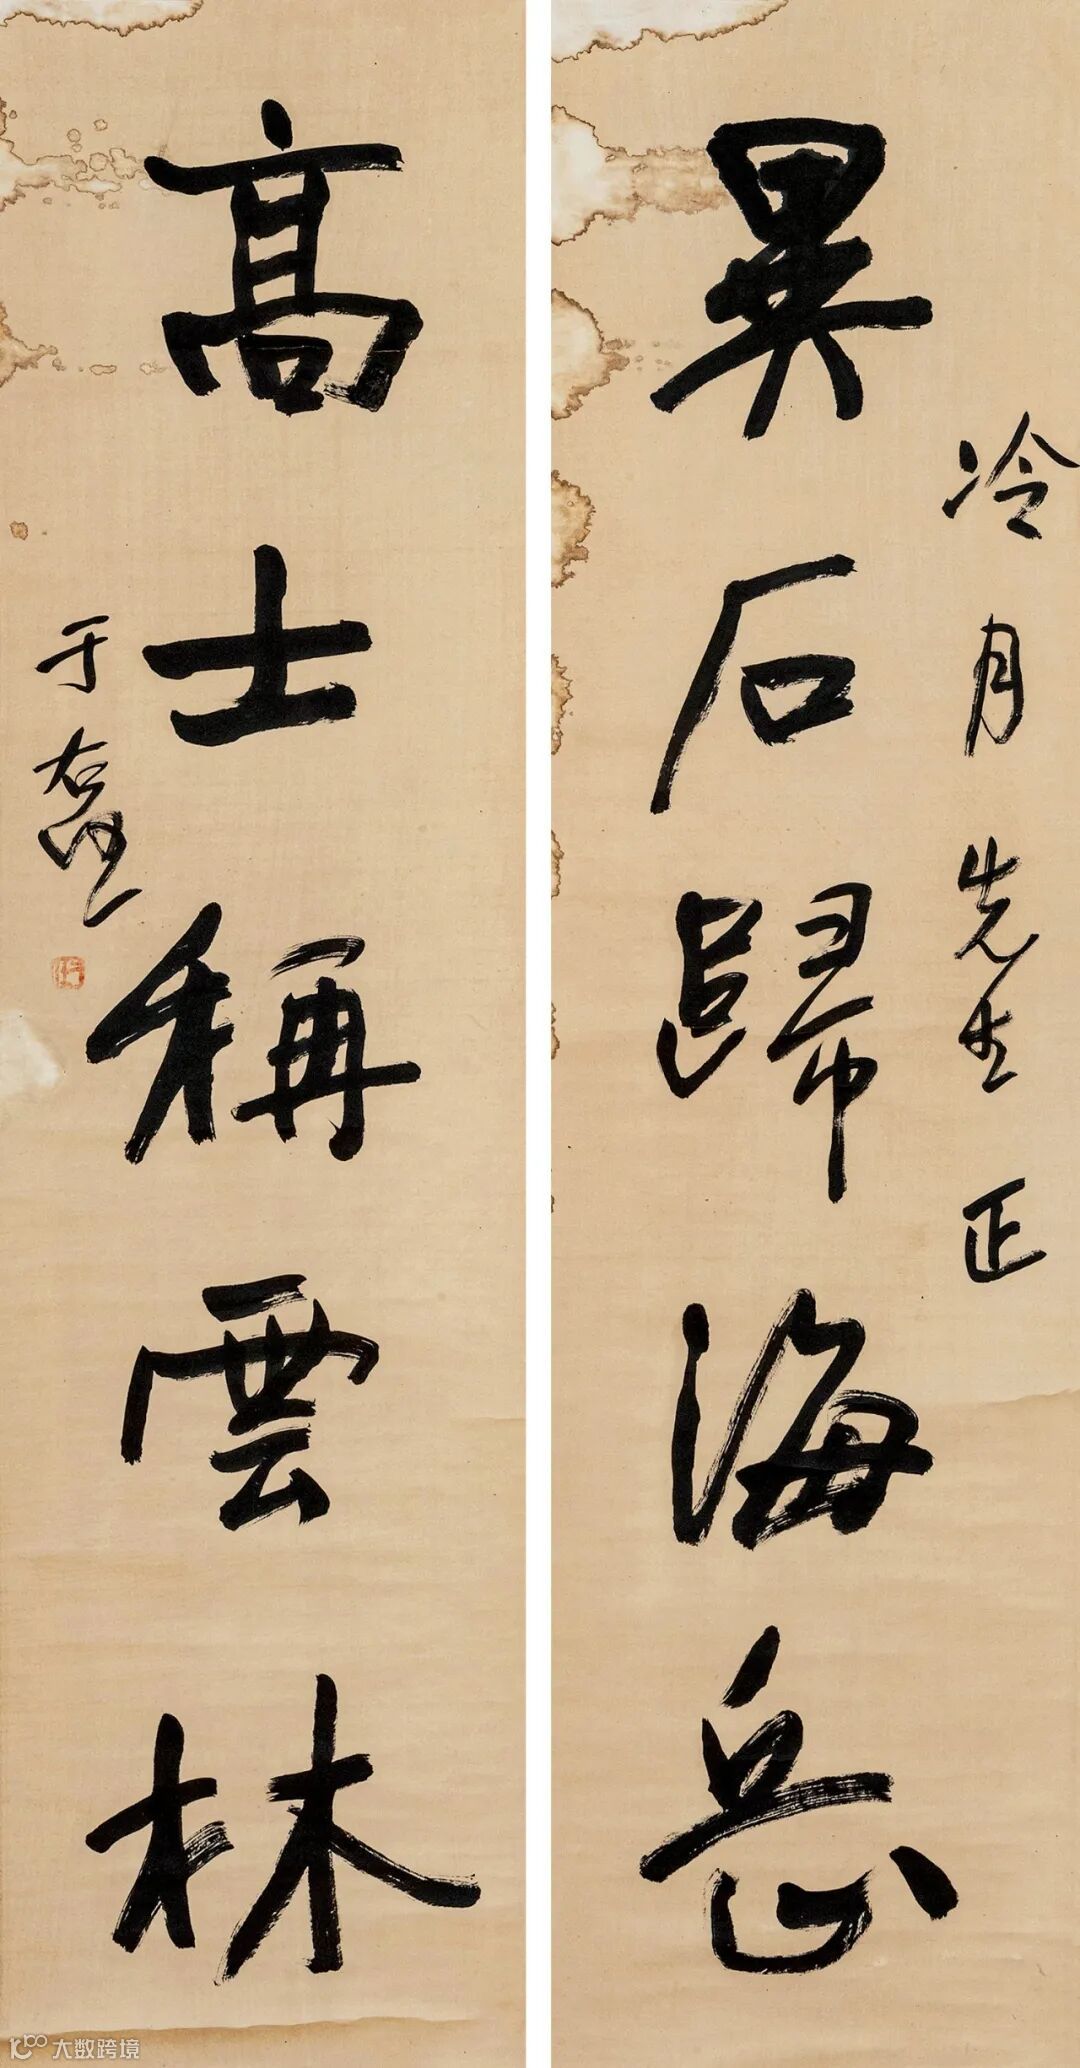 冷月先生正
異石歸海岳
高士稱雲林
于右任
大数跨境